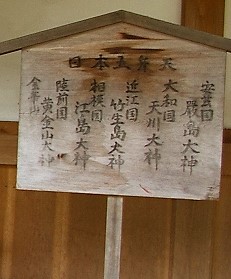 日本五弁天
安芸国
厳島大神
大和国
天川大神
近江国
竹生島大神
相模国
江島大神
陸前国
金華山
黄金山大神